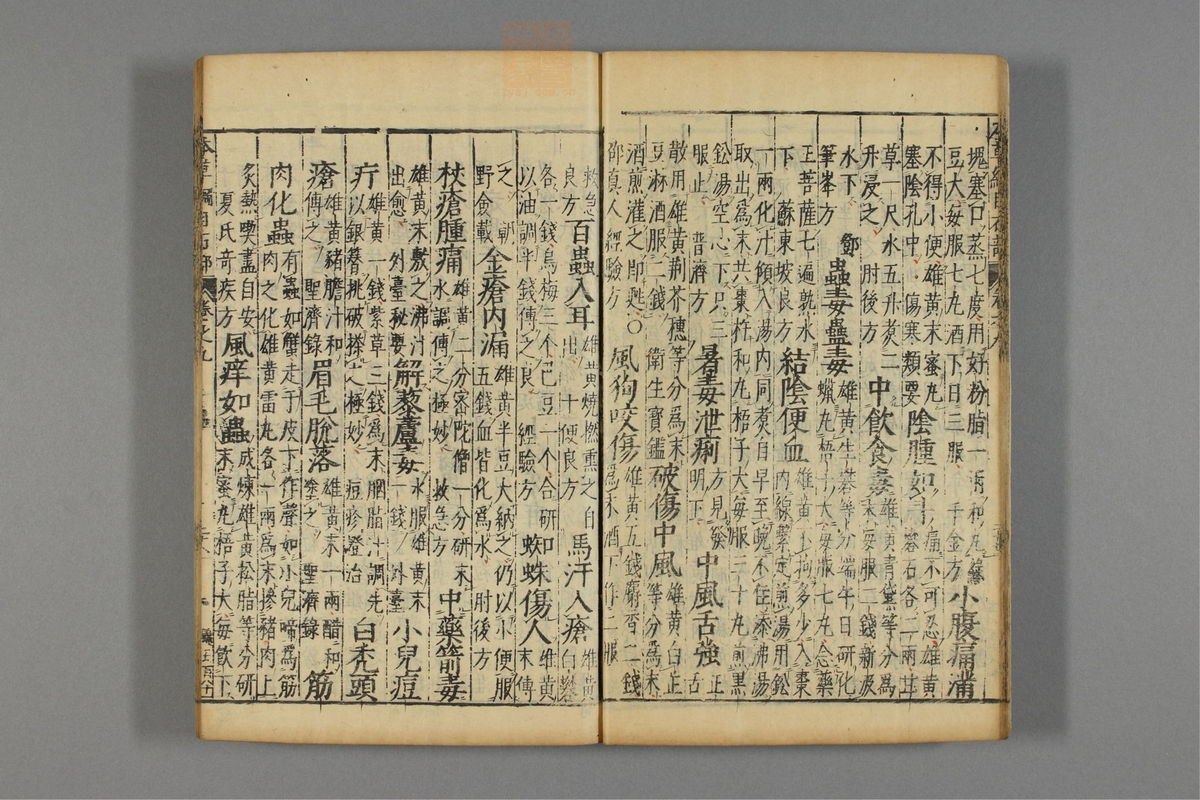 塊塞口蒸七度用好粉脂一兩和丸菉
豆大每服七丸酒下日三服 千金方 小腹痛滿
不得小便雄黃末蜜丸
塞陰孔中 傷寒類要 陰腫如斗 痛不可忍雄黃
礬石各二兩甘
草一尺水五升煮二
升浸之 肘後方 中飲食毒 雄黃青黛等分爲
末每服二錢新汲
水下 鄧
筆峯方 蟲毒蠱毒 雄黃生礬等分端午日研化
蠟丸梧子大每服七丸念藥
王菩薩七遍熟水
下 蘇東坡良方 結陰便血 雄黃不拘多少入棗
內線繫定煎湯用鉛
一兩化汁傾入湯內同煮自早至晚不住添沸湯
取出爲末共棗杵和丸梧子大每服三十丸前黑
鉛湯空心下只三
服止 普濟方 暑毒泄痢 方見發
明下 中風舌強 正舌
散用雄黃荆芥穗等分爲末
豆淋酒服二錢 衛生寶鑑 破傷中風 雄黃白芷
等分爲末
酒煎灌之即甦○
邵真人經驗方 風狗咬傷 雄黃五錢麝香二錢
爲末酒下作二服
救急
良方 百蟲入耳 雄黃燒撚熏之自
出 十便良方 馬汗入瘡 雄黃
白礬
各一錢烏梅三个巴豆一个合研
以油調半錢傅之良 經驗方 蜘蛛傷人 雄黃
末傅
之 朝
野僉載 金瘡內漏 雄黃半豆大納之仍以小便服
五錢血皆化爲水 肘後方
杖瘡腫痛 雄黃二分密陀僧一分研末
水調傅之極妙 救急方 中藥箭毒
雄黃末敷之沸汁
出愈 外臺秘要 解藜蘆毒 水服雄黃末
一錢 外臺 小兒痘
疔 雄黃一錢紫草三錢爲末胭脂汁調先
以銀簪挑破搽之極妙 痘疹證治 白禿頭
瘡 雄黃豬膽汁和
傅之 聖濟錄 眉毛脫落 雄黃末一兩醋和
塗之 聖濟錄 筋
肉化蟲 有蟲如蟹走于皮下作聲如小兒啼爲筋
肉之化雄黃雷丸各一兩爲末摻豬肉上
炙熱喫盡自安
夏氏奇疾方 風痒如蟲 成煉雄黃松脂等分研
末蜜丸梧子大每飲下